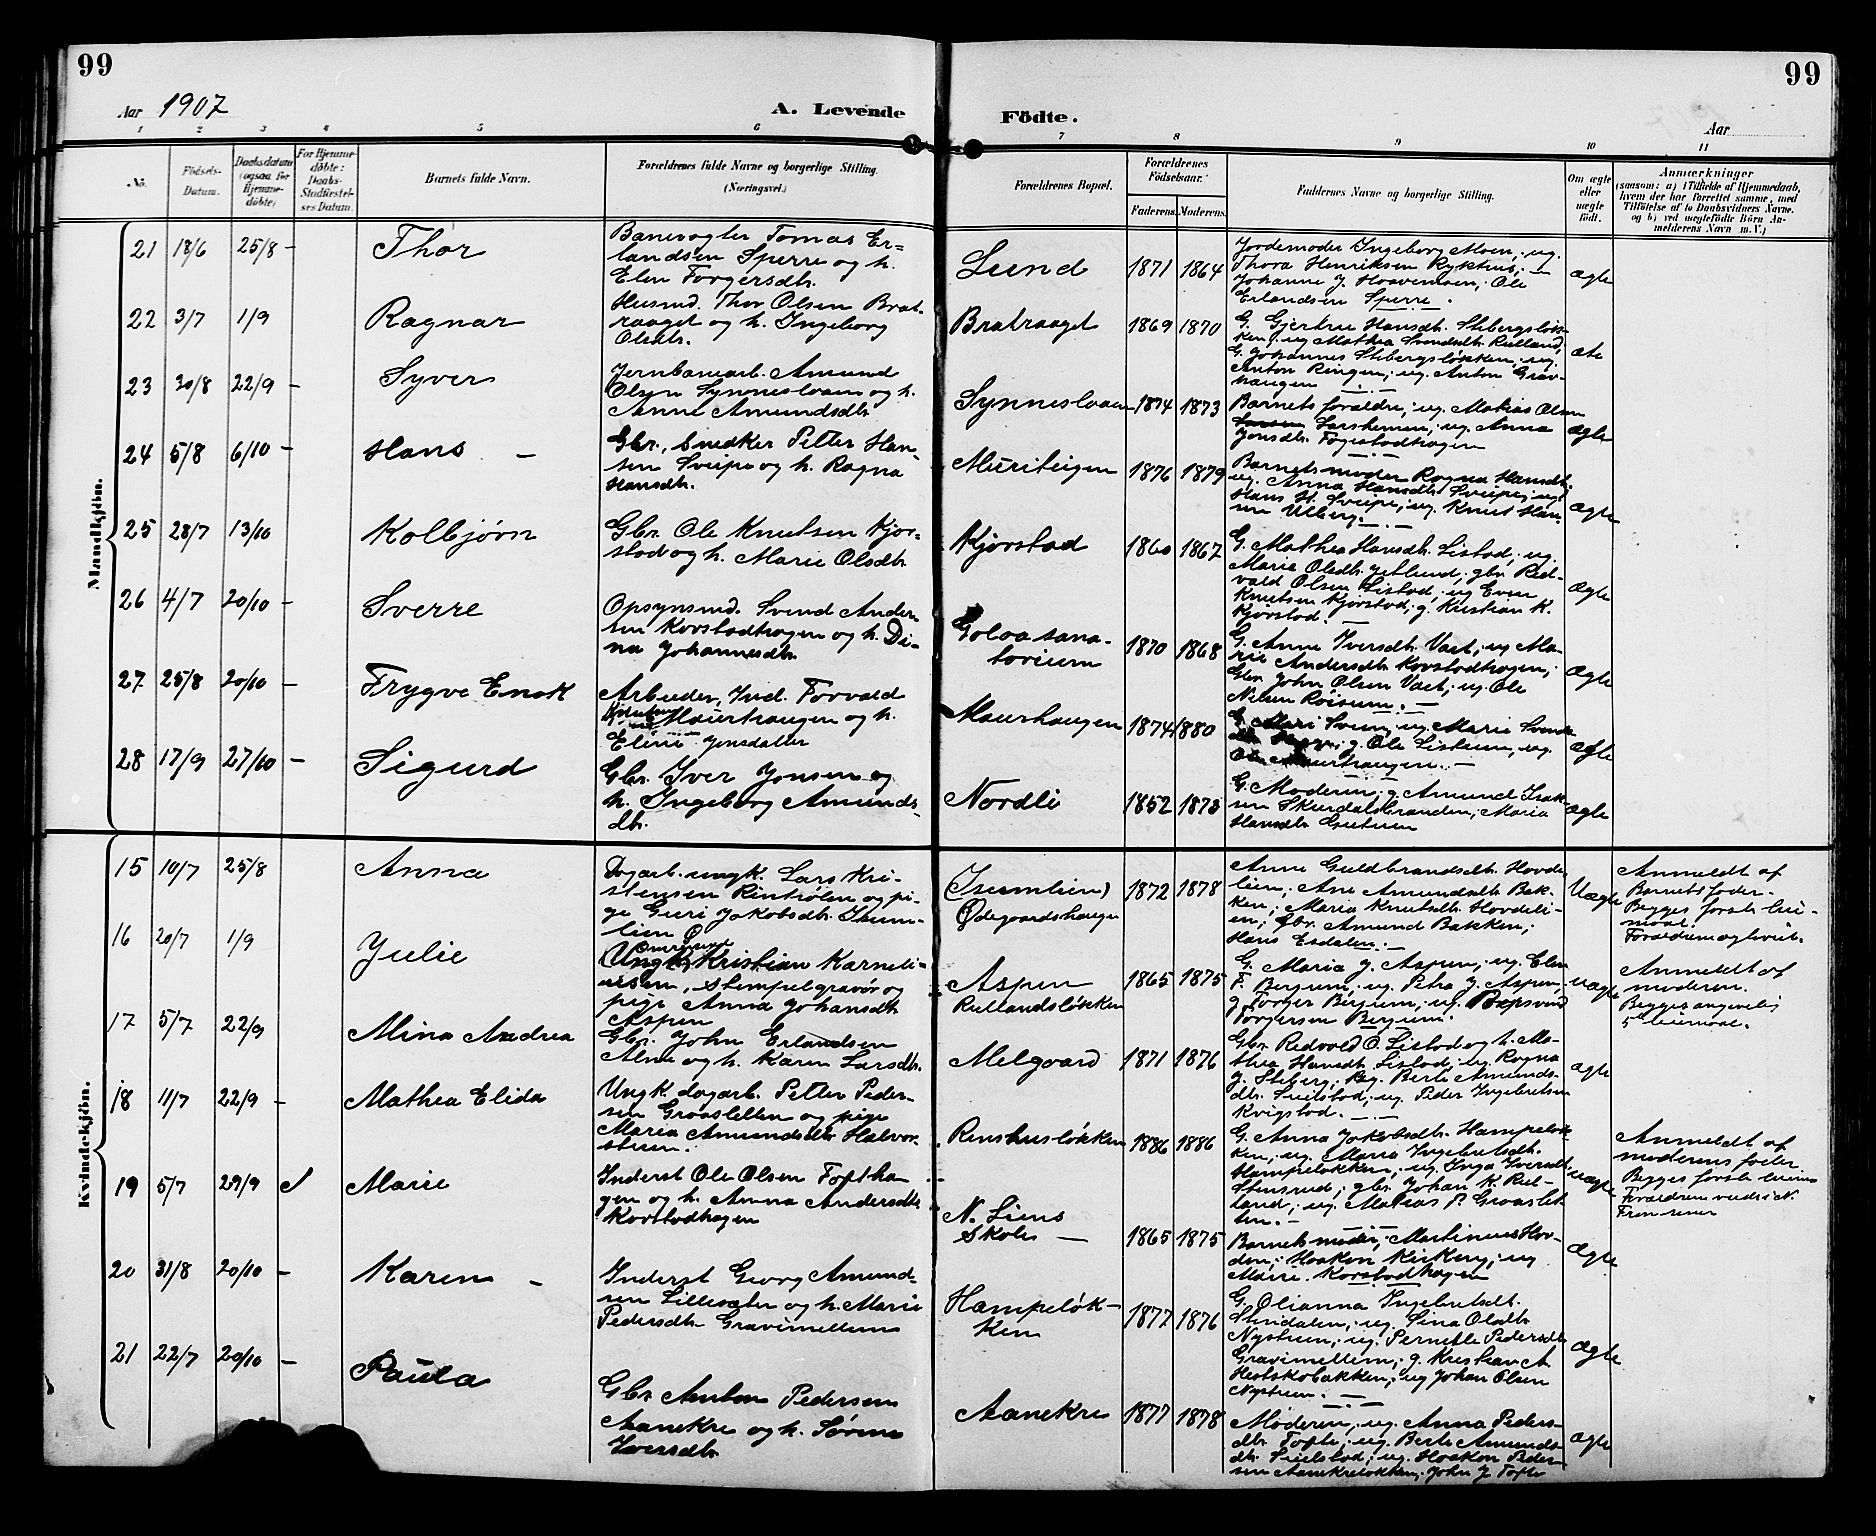 99
99
Aar 1907
A. Levende
Födte.
Aar
1 2 3 4 5 6 7 8 9 10 11
No.
Födsels-
Datum.
Daabsdatum
(ogsaa for
Hjemme-
döbte)
For Hjemme-
döbte:
Daabs-
Stadfæstel-
ses Datum.
Barnets fulde Navn.
Forældrenes fulde Navne og borgerlige Stilling.
(Næringsvei.)
Forældrenes Bopæl.
Forældrenes
Födselsaar.
Faderens. Moderens.
Faddernes Navne og borgerlige Stilling.
Om ægte
eller
uægte
født.
Anmærkninger
(saasom: a) i Tilfælde af Hjemmedaab,
hvem der har forrettet samme, med
Tilföielse af to Daabsvidners Navne.
og b) ved uægtefödte Börn An-
melderens Navn m. V.)
Mandkjön.
21 18/6 25/8 -
Thor
Banevogter Tomas Er-
landsen Sperre og h.
Elen Torgersdtr.
Lund
1871 1864
Jordemoder Ingeborg Moen; ug.
Thora Henriksen Rykhus; -
Johanne J. Haavemoen; Ole
Erlandsen Sperre.
ægte
22 3/7 1/9
Ragnar
Husmd. Thor Olsen Brat-
raaget og h. Ingeborg
Olsdtr.
Bratraaget
1869 1870
G. Gjertrue Hansdtr. Stebergsløk-
ken; ug Mathea Svendsdtr. Rulland,
G. Johannes Stebergsløkken; ug.
Anton Ringen; ug. Anton Grav-
haugen
ægte
23 30/8 22/9 -
Syver
Jernbanearb. Amund
Olsen Synneslvaen og h.
Anne Amundsdtr.
Synneslvaen
1874 1873
Barnets forældre; ug. Matias Olsen
Larshemen; ug. Anna
Jonsdtr. Fogestadhagen
ægte
24 5/8 6/10 -
Hans -
Gbr., Snedker Petter Han-
sen Sveipe og h. Ragna
Hansdtr.
Muriteigen
1876 1879
Barnets moder Ragna Hansdtr.
ug. Anna Hansdtr. Sveipe; ug
Hans H. Sveipe; ug. Knut Han-
sen Ulberg.
ægte
25 28/7 13/10
Kolbjørn
Gbr. Ole Knutsen Kjør-
stad og h. Marie Olsdtr.
Kjørstad
1860 1867
G. Mathea Hansdtr. Listad; ug.
Marie Olsdtr. Jetlund; gbr. Red-
vald Olsen Listad; ug Even
Knutsen Kjørstad; g. Kristian K.
Kjørstad.
ægte
26 4/7 20/10 -
Sverre
Opsynsmd. Svend Ander-
sen Korstadhagen og h. Di-
na Johannesdtr.
Golaa sana-
torium
1870 1868
G. Anne Iversdtr. Vast; ug Ma-
rie Andersdtr. Korstadhagen;
Gbr. John Olsen Vast; ug. Ole
Nilsen Røisum. -
ægte
27 25/8 20/10 -
Trygve Enok
Arbeider, Ind. Torvald
Maurhaugen og h.
Eline Jonsdatter
Maurhaugen
1874 1880
G. Mari Sveen; ug. Marie Svends-
dtr.; g. Ole Listuen, ug.
Maurhaugen. -
ægte
28 17/9 27/10 -
Sigurd
Gbr. Iver Jonsen og
h. Ingeborg Amunds-
dtr.
Nordli
1852 1873
G. Moderen; g. Amund Isak-
sen Skurdalstranden; Maria
Hansdtr.
ægte
Kvindekjön.
15 10/7 25/8
Anna
Dagarb. ungk. Lars Kri-
stensen Rintiølen og pi-
ge Guri Jakobsdtr. Isum-
lien
(Isumlien)
Ødegaardshaugen
1872 1878
Anne Guldbrandsdtr. Hovde-
lien; Ane Amundsdtr. Bak-
ken; Maria Knutsdtr. Hovdeli-
en; Gbr. Amund Bakken;
Hans Esdalen. -
Uægte
Anmeldt af
Barnets fader-
Begges første lei-
maal.
16 20/7 1/9
Julie
Ungk. Kristian Karneli-
ussen, Stempelgravør og
pige Anna Johansdtr.
Aspen
Aspen
Rullandsløkken
1865 1875
G. Maria J. Aspen; ug. Elen
F. Berjum; ug. Petra J. Aspen;
g. Torger Berjum; ug.
Torgersen Berjum.
uægte
Anmeldt af
moderen.
Begges angivelig
5te leiermaal.
17 5/7 22/9
Mina Andrea
Gbr. John Erlandsen
Alme og h. Karen Larsdtr.
Melgaard
1871 1876
Gbr. Redvald O. Listad og h. Ma-
thea Hansdtr. Listad; ug. Ragna
J. Steberg; Berte Amunds-
dtr. Suilstad; ug. Peder Ingebretsen
Kvigstad. -
ægte
18 11/7 22/9 -
Mathea Elida
Ungk. dagarb. Petter Peder-
sen Graasletten og pige
Maria Amundsdtr. Halvor-
stuen.
Renshusløkken
1886 1886
G. Anna Jakobsdtr. Hampeløk-
ken; ug. Maria Ingebretsdtr.
Hampeløkken; ug. Inga Iversdtr.
Stensrud; gbr. Johan K. Rul-
land; ug. Matias P. Graaslet-
ten. -
uægte
Anmeldt af
moderens fader.
Begges første leierm.
19 5/7 29/9
Marie
Inderst Ole Olsen Toftha-
gen og h. Anna Andersdtr.
Korstadhagen
N. Liens
Skole -
1865 1875
Barnets moder; Martinus Hov-
den; Haakon Kirkeng; ug
Marie Korstadhagen
ægte
20 31/8 20/10 -
Karen -
Inderst Georg Amund-
sen Lillesæter og h. Marie
Pedersdtr. Gravimellem
Hampeløk-
ken
1877 1876
G. Olianna Ingebretsdtr.
Stendalen; ug. Lina Olsdtr.
Nystuen; ug. Pernille Pedersdtr.
Gravimellem; g. Kristian A.
Heotskobakken; ug Johan Olsen
Nystuen. -
ægte
21 22/7 20/10 -
Paula
Gbr. Anton Pedersen
Aanekre og h. Sørine
Iversdtr.
Aanekre
1877 1878
Moderen; ug. Anna Peders-
dtr. Tofte; ug. Berte Amunds-
dtr. Suilstad; ug. Haakon Peder-
sen Aanekreløkken; John J. Tofte
ægte